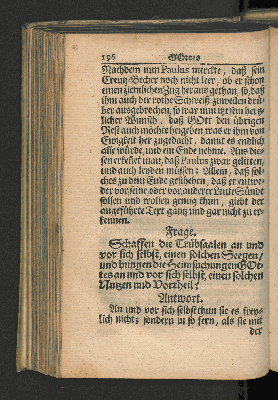 196 Gottes
Nachdem nun Paulus merckte, daß sein
Creutz-Becher noch nicht leer, ob er schon
einen ziemlichen Zug heraus gethan, so, daß
ihm auch der rothe Schweiß zuweilen drü-
ber ausgebrochen, so war nun itzt sein hertz-
licher Wunsch, daß GOtt den übrigen
Rest auch möchte hergeben, was er ihm von
Ewigkeit her zugedacht, damit es endlich
alle würde, und ein Ende nehme. Aus die-
sen erhellet man, daß Paulus zwar gelitten,
und auch leyden müssen: Allein, daß sol-
ches zu dem Ende geschehen, daß er entwe-
der vor seine oder vor anderer Leute Sünde
sollen und wollen genug thun, giebt der
angeführte Text gantz und gar nicht zu er-
kennen.
Frage.
Schaffen die Trübsaalen an und
vor sich selbst, einen solchen Seegen/
und bringen die Heimsuchungen GOt-
tes an und vor sich selbst, einen solchen
Nutzen und Vortheil?
Antwort.
An und vor sich selbst thun sie es frey-
lich nicht; sondern in so fern, als sie mit
der